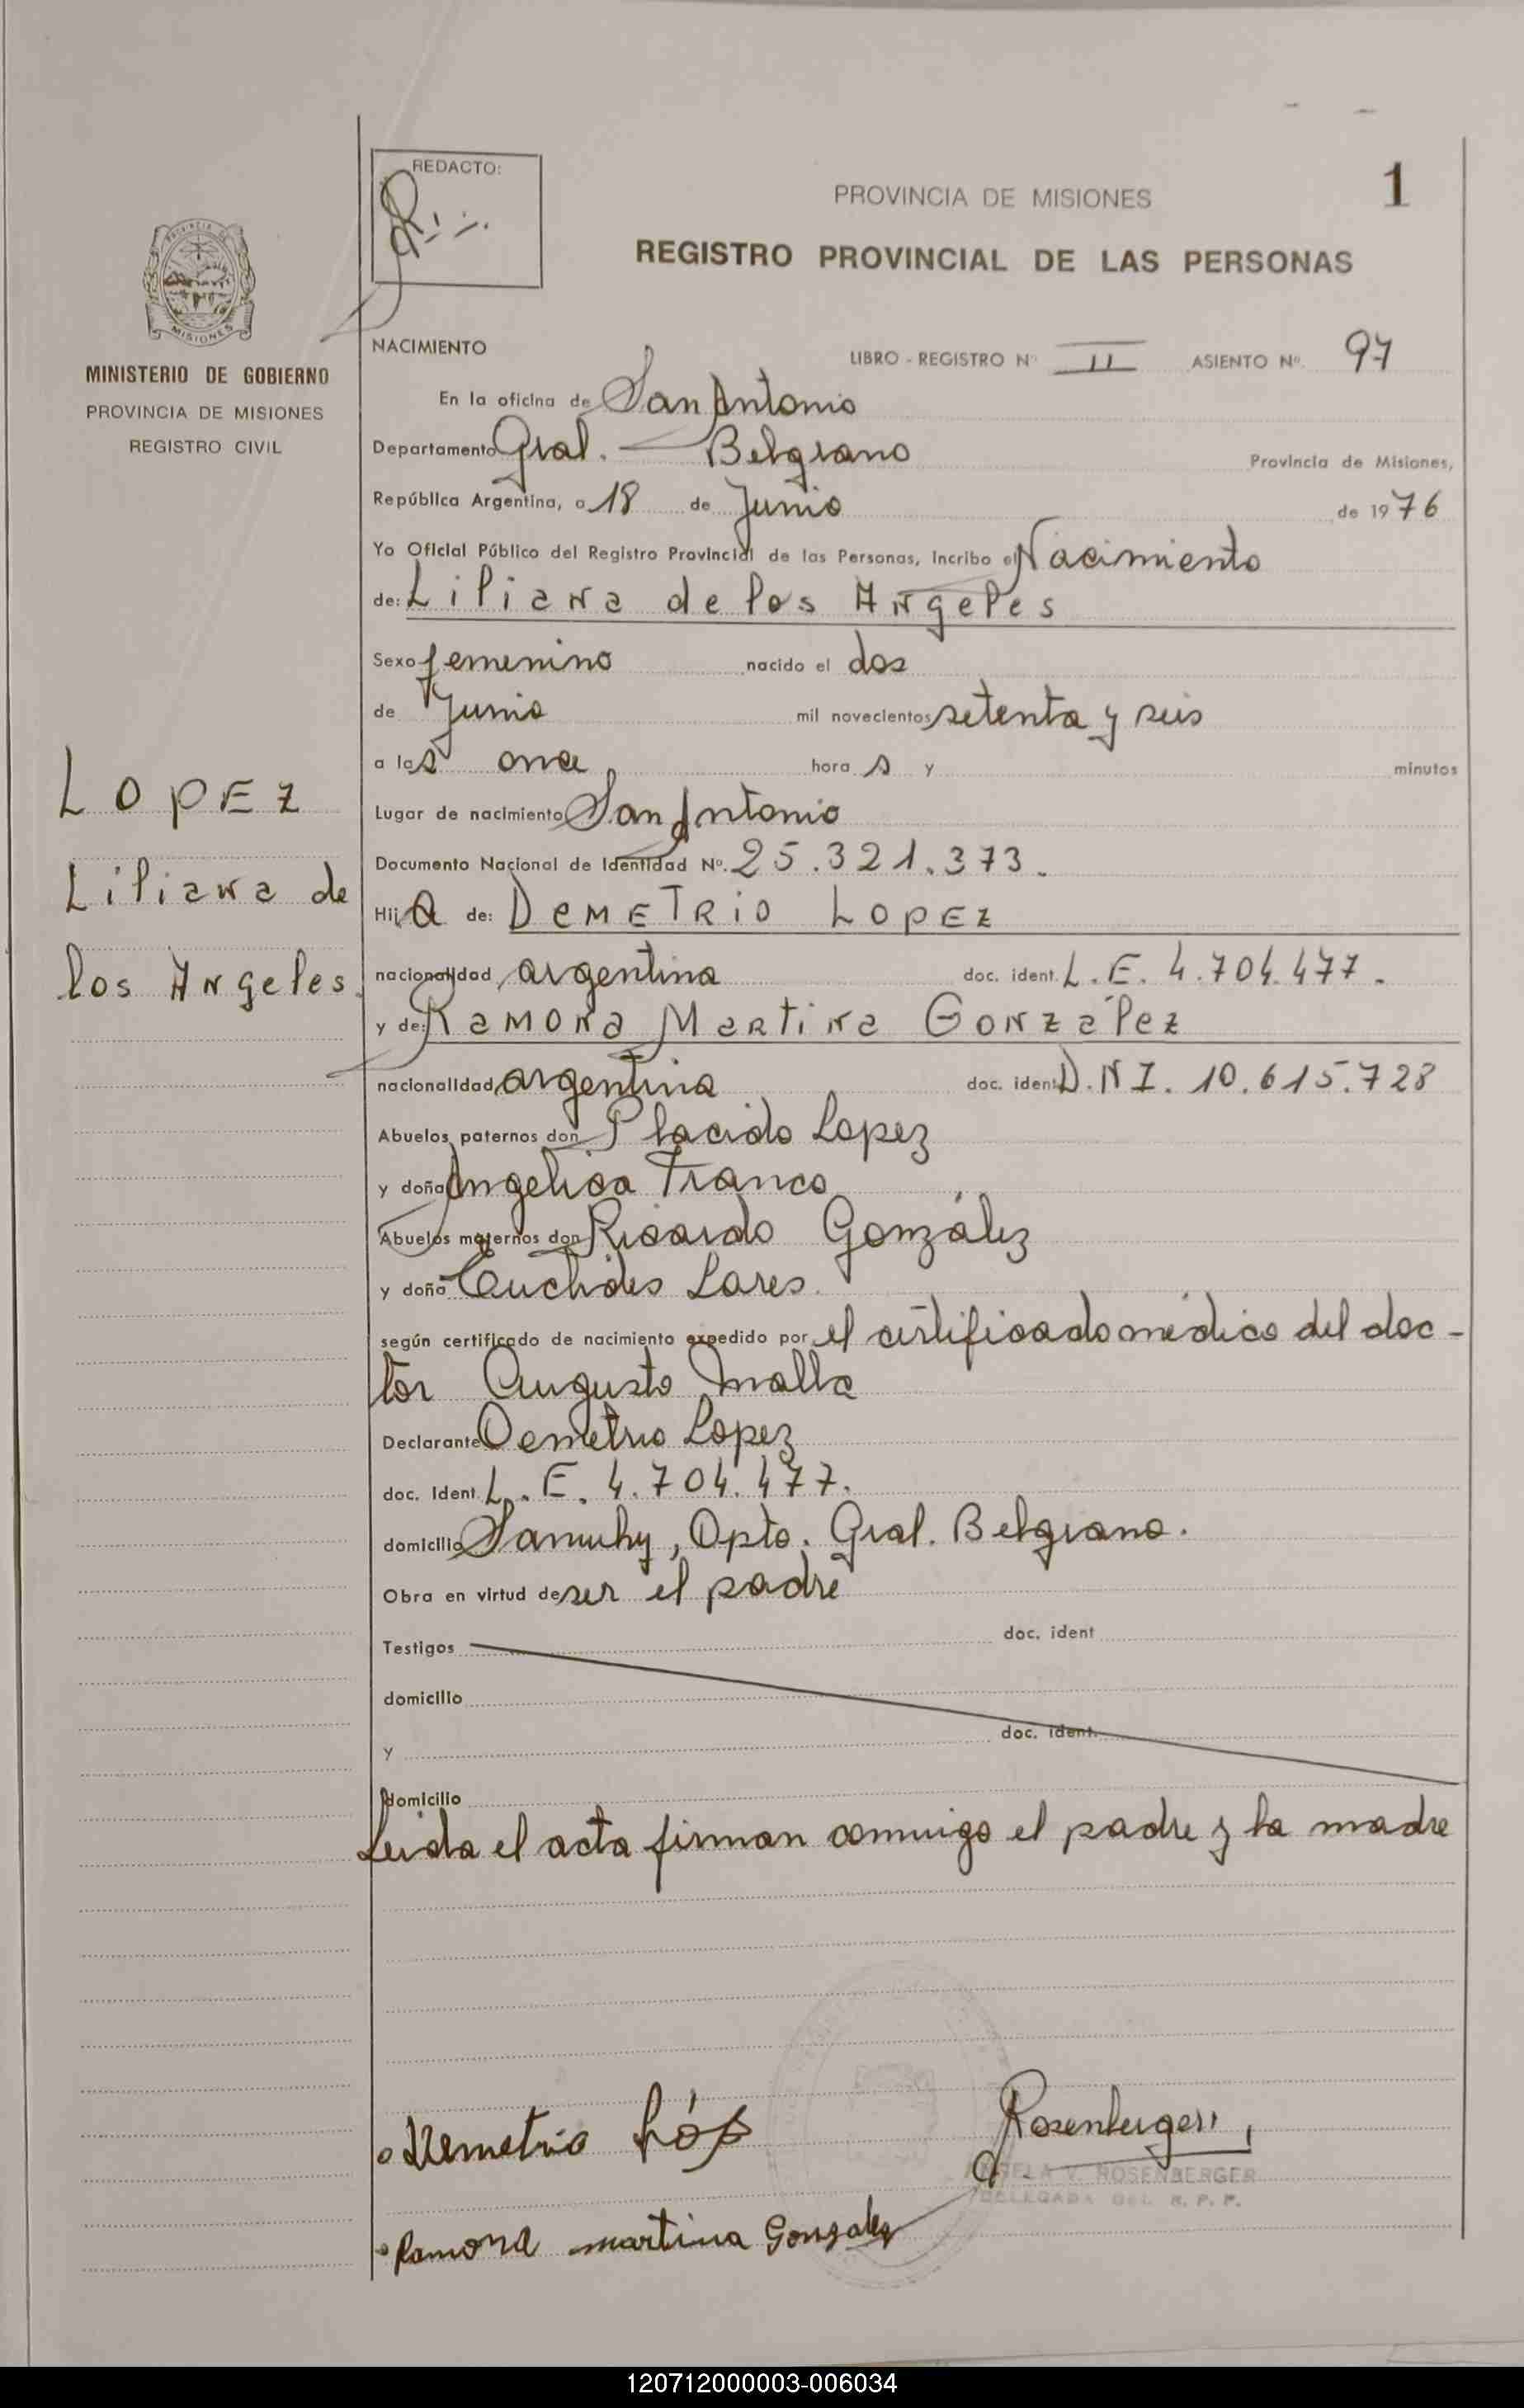 REDACTO:
PROVINCIA DE MISIONES
1
REGISTRO PROVINCIAL DE LAS PERSONAS
PROVINCIA DE
MISIONES
MINISTERIO DE GOBIERNO
PROVINCIA DE MISIONES
REGISTRO CIVIL
NACIMIENTO LIBRO - REGISTRO Nº II ASIENTO Nº 97
En la oficina de San Antonio
Departamento Gral. Belgrano Provincia de Misiones,
República Argentina, a 18 de Junio de 1976
Yo Oficial Público del Registro Provincial de las Personas, Incribo el Nacimiento
de: Liliana de los Angeles
Sexo femenino nacido el dos
de Junio mil novecientos setenta y seis
a las once hora s y minutos
LOPEZ
Liliana de
los Angeles.
Lugar de nacimiento San Antonio
Documento Nacional de Identidad Nº. 25.321.373.
Hija de: DEMETRIO LOPEZ
nacionalidad argentina doc. ident. L.E. 4.704.477.
y de: Ramona Martina González
nacionalidad argentina doc. ident D.N I. 10.615.728
Abuelos paternos don Placido Lopez
y doña Angelica Franco
Abuelos maternos don Ricardo González
y doña Euclides Lares.
según certificado de nacimiento expedido por el certificado médico del doc-
tor Augusto Malla
Declarante Demetrio Lopez
doc. Ident. L.E. 4.704.477.
domicilio Samuhy, Dpto. Gral. Belgrano.
Obra en virtud de ser el padre
Testigos doc. ident
domicilio
y doc. ident.
domicilio
Leida el acta firman conmigo el padre y la madre
Demetrio Lóp
Rosenberger
ANGELA V. ROSENBERGER
DELEGADA DEL R. P. P.
Ramona martina Gonzalez
120712000003-006034